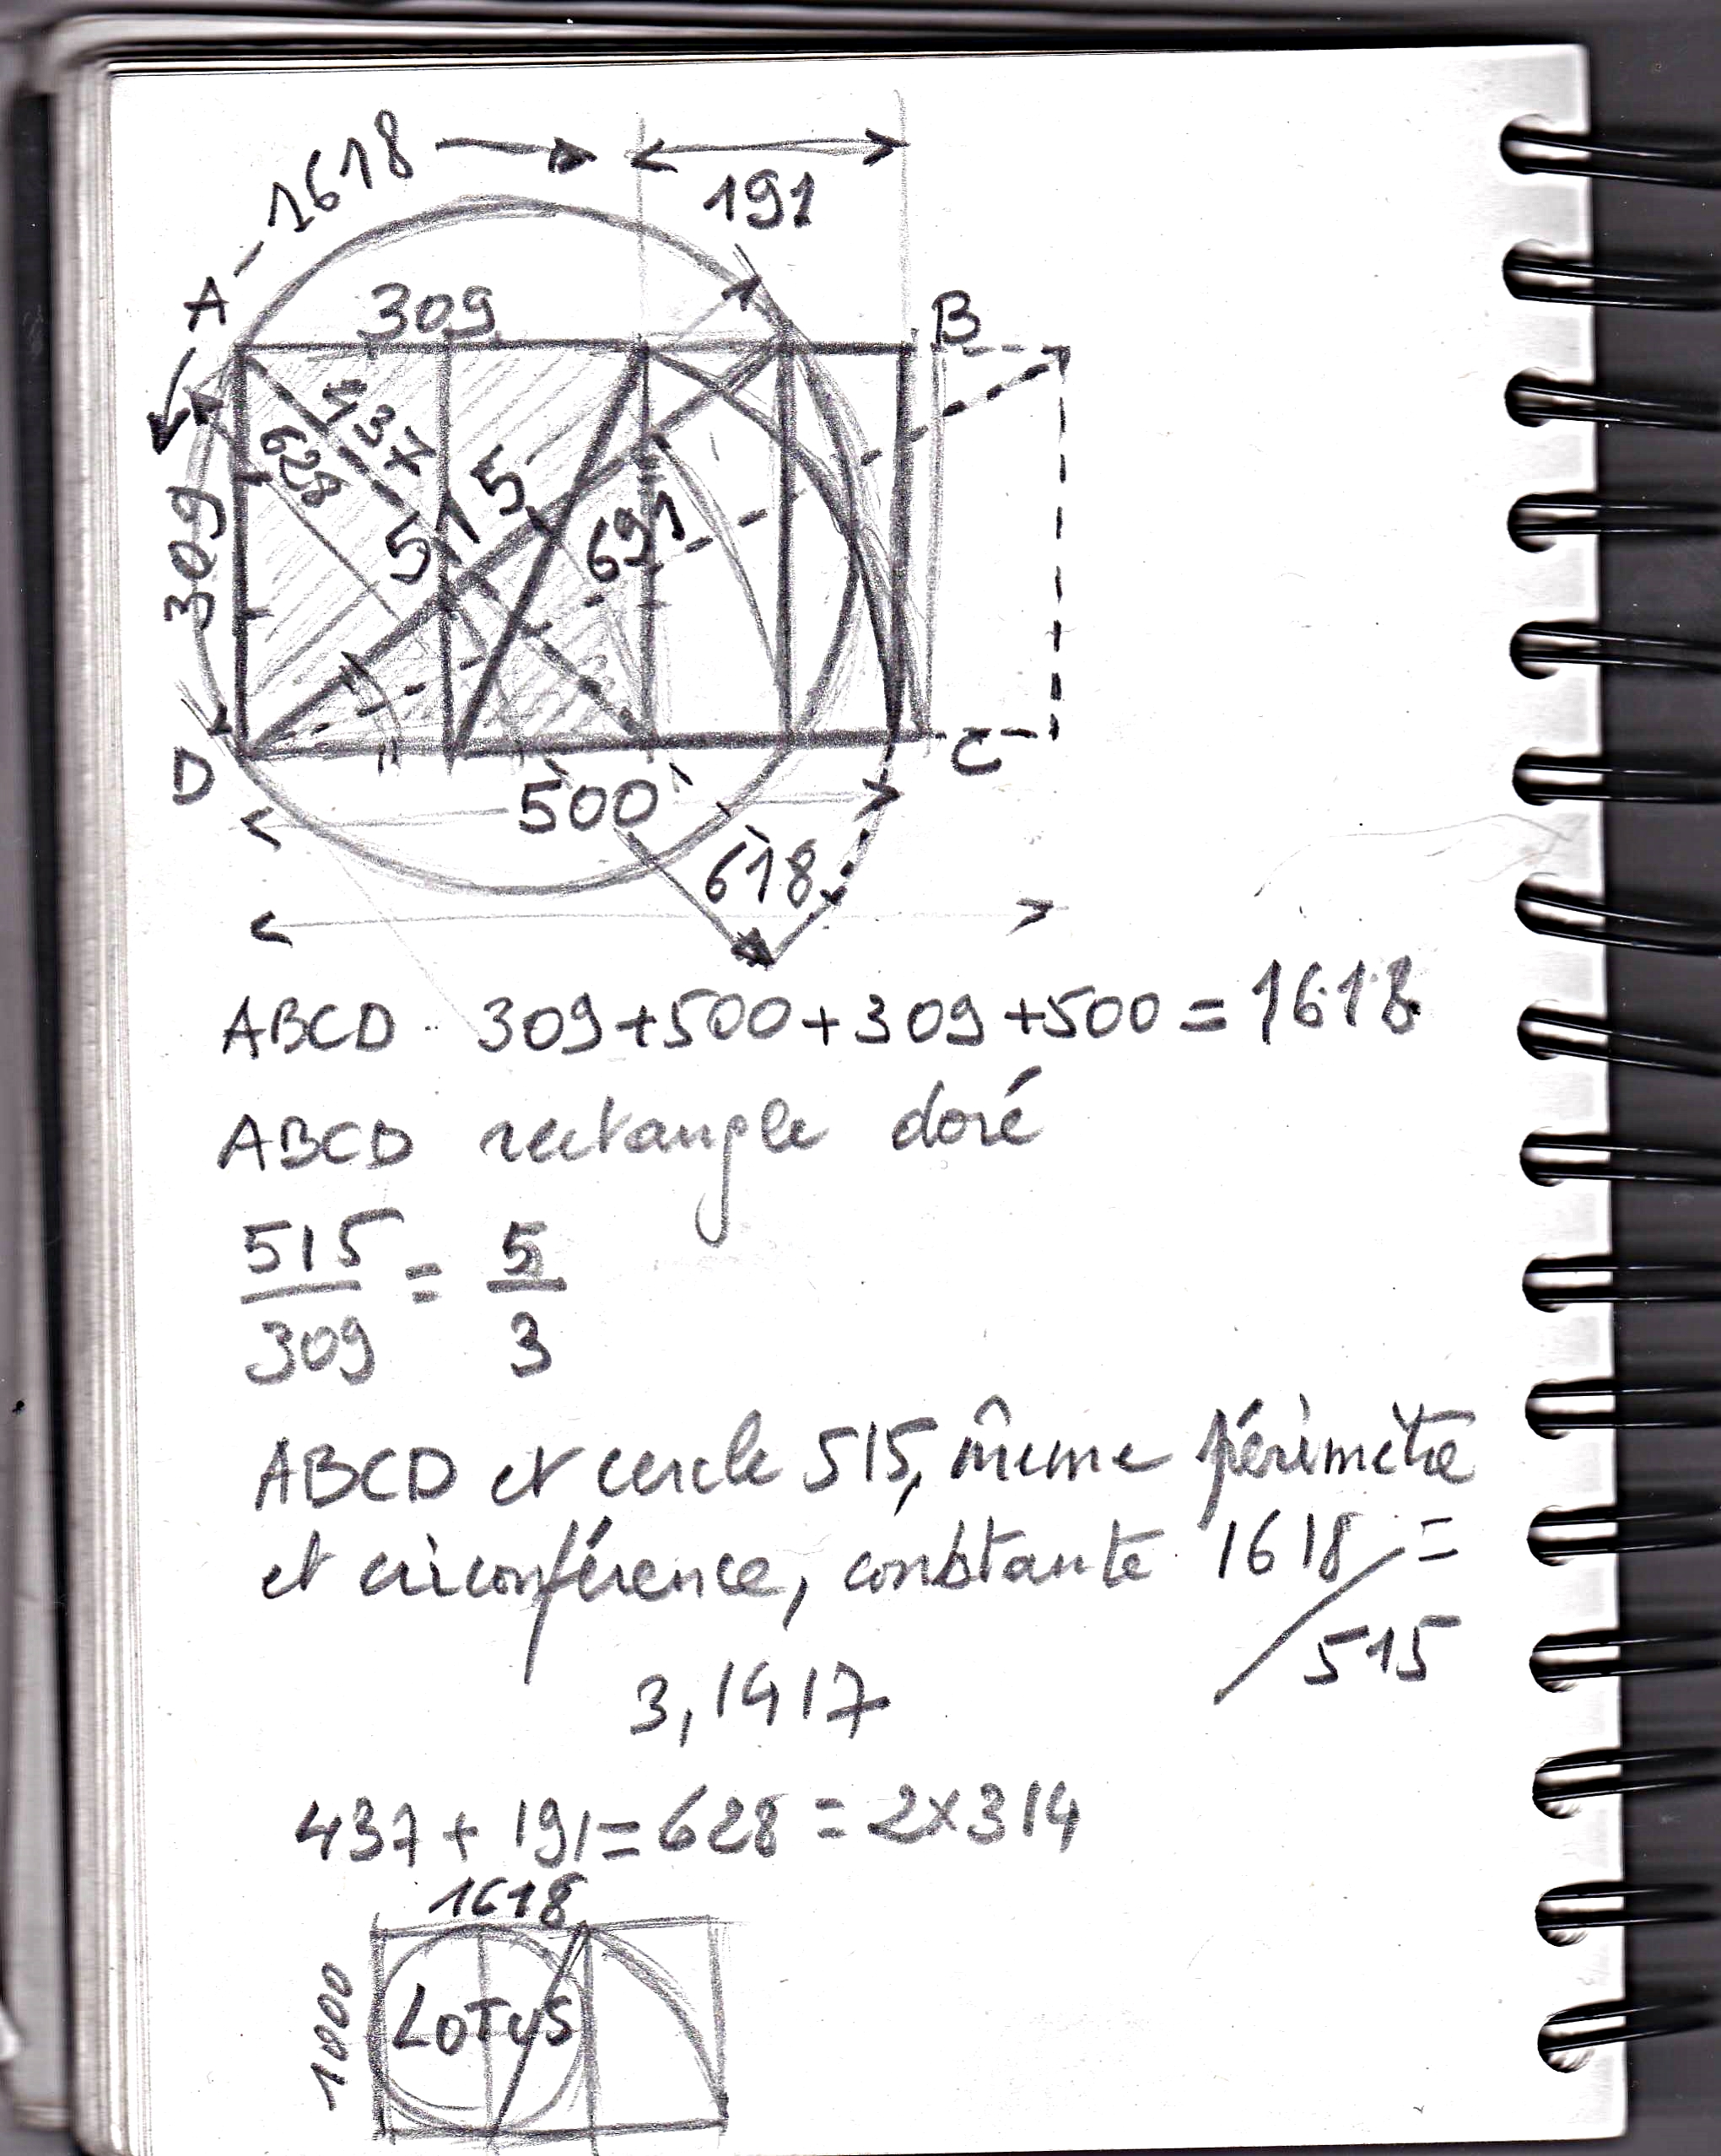 1618
191
A
309
B
437
628
515
309
691
D
500
C
618
ABCD 309+500+309+500=1618
ABCD rectangle doré
515/309 = 5/3
ABCD et cercle 515, même périmètre
et circonférence, constante 1618/515 =
3,1417
437+191=628=2x314
1618
1000
LOTUS